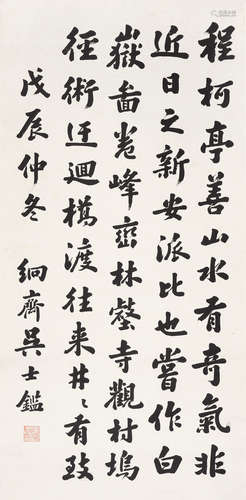 程柯亭善山水有奇氣非
近日之新安派比也嘗作白
嶽圖卷峰巒林壑寺觀村塢
徑術迂迴橋渡往来井〻有致
戊辰仲冬 絅齋吳士鑑